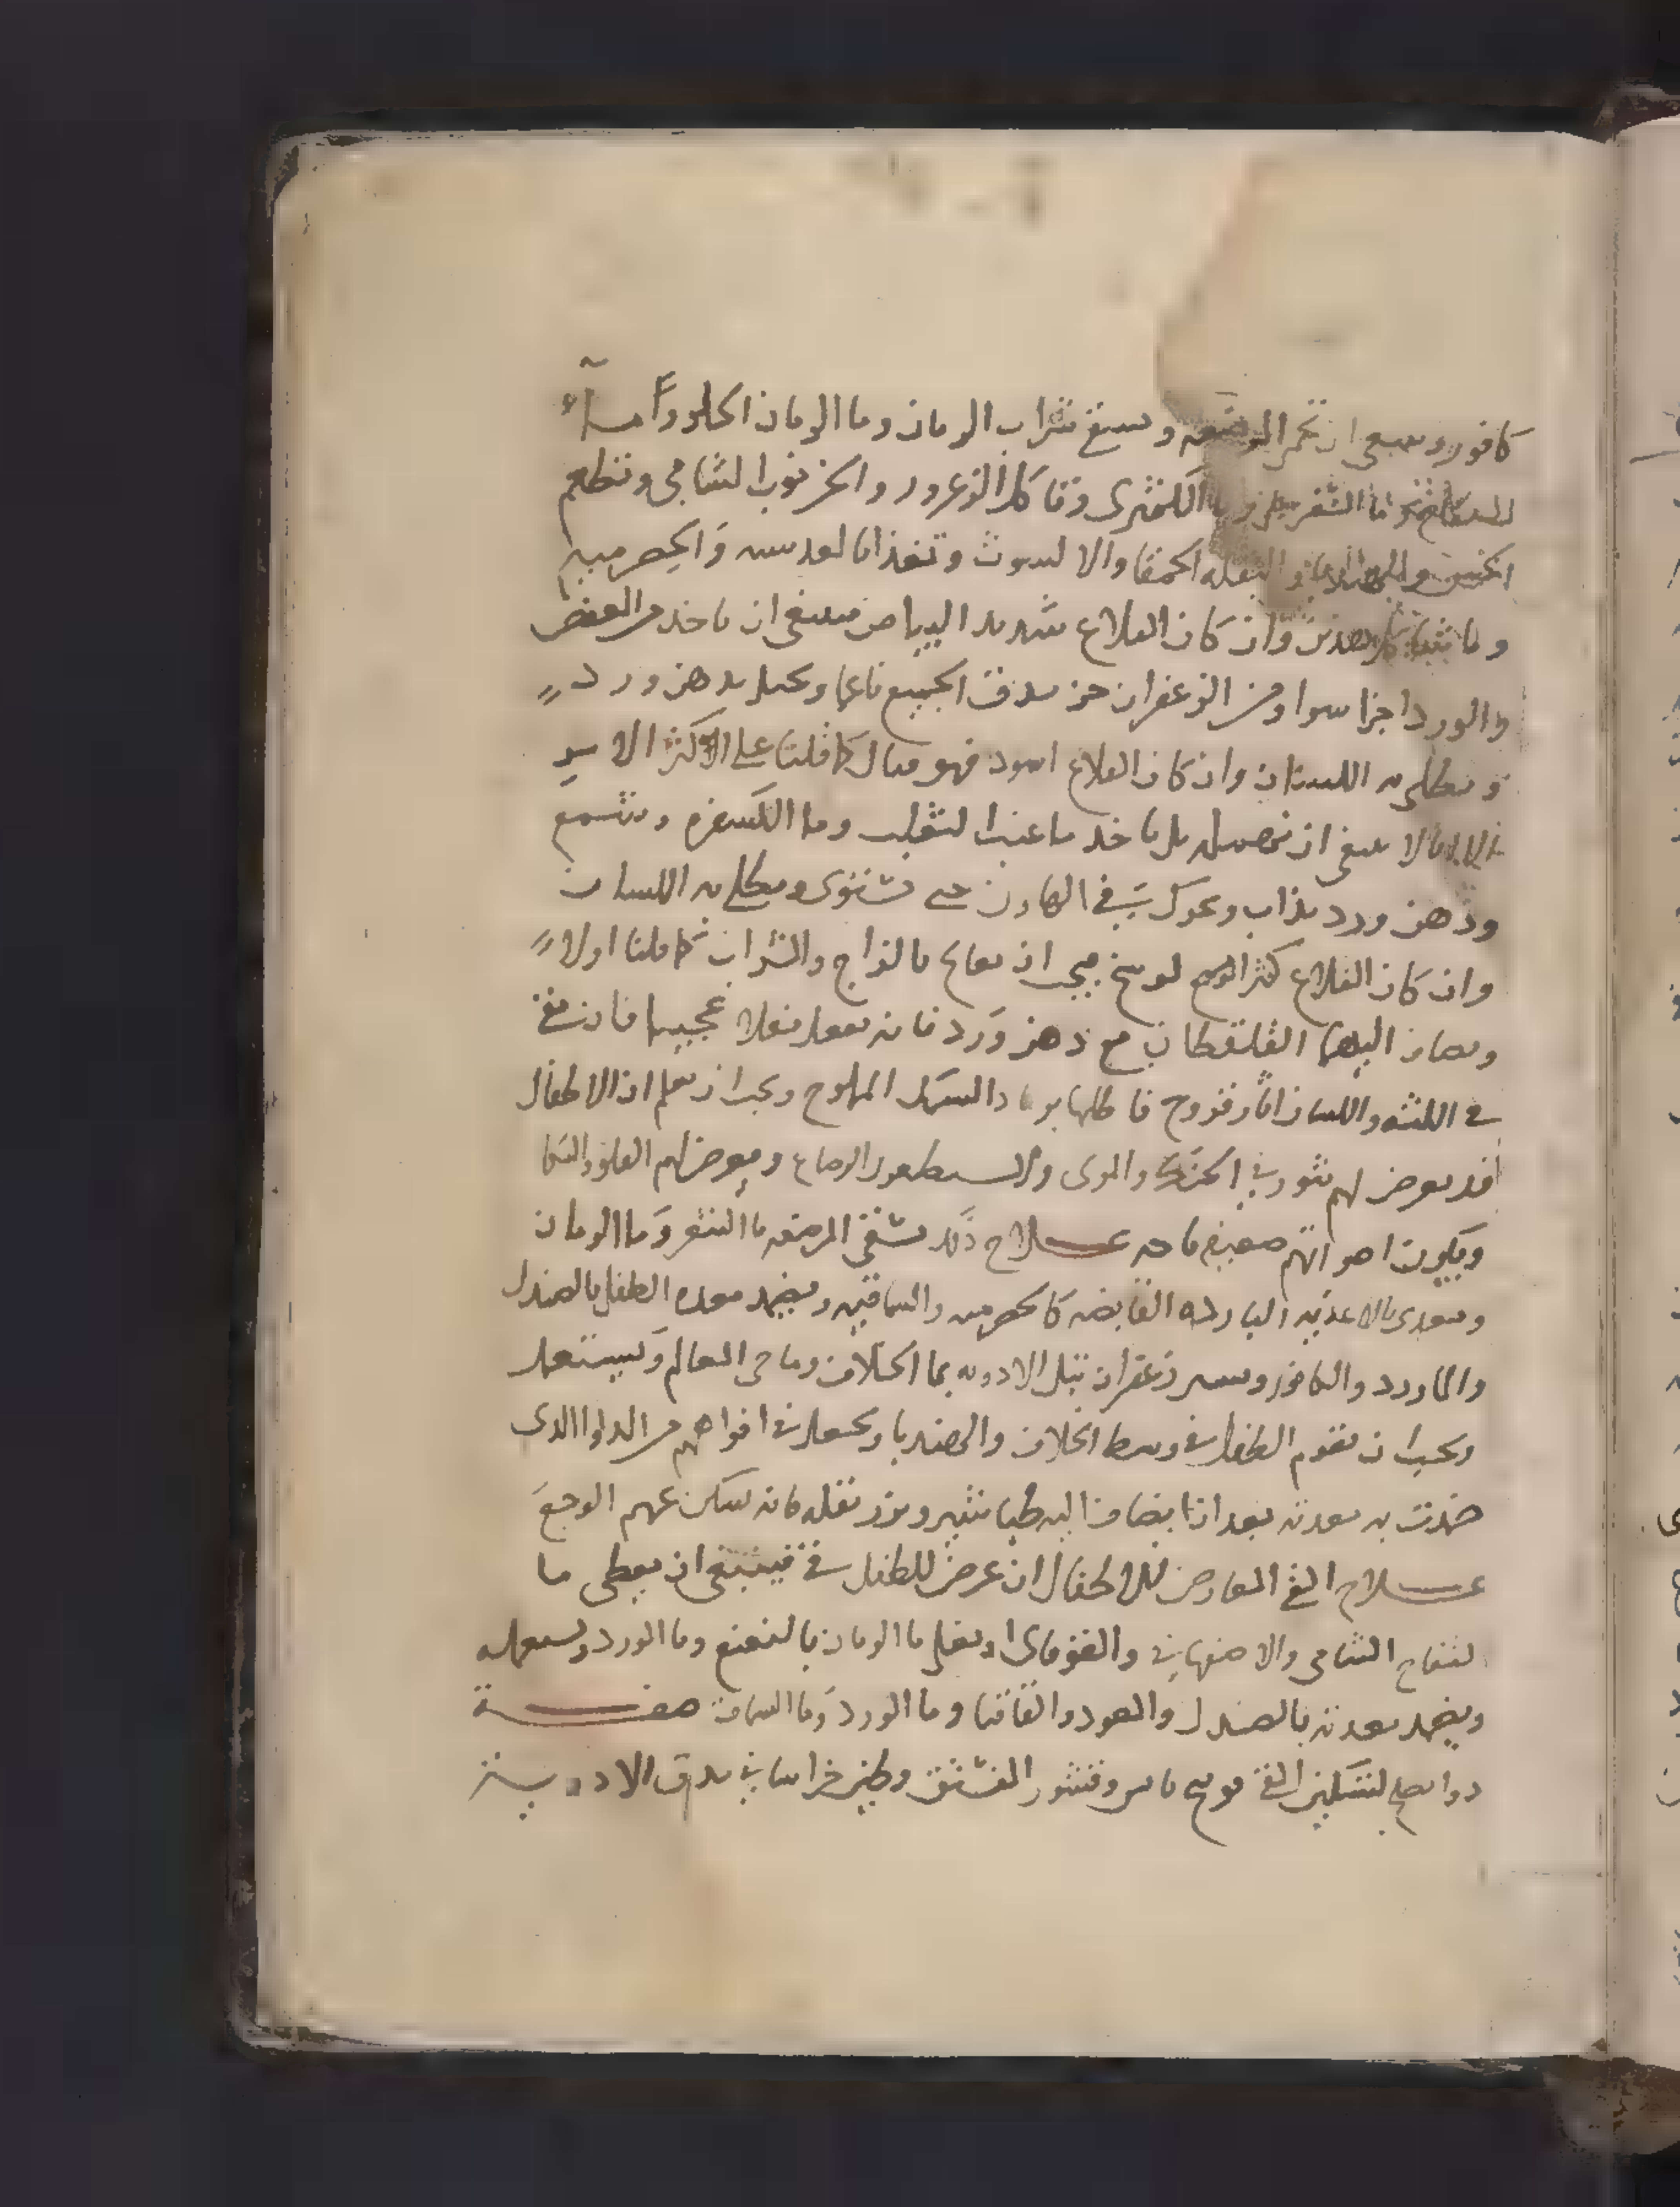 كافور وينبغي ان تحمى المرضعه وتسقى شراب الرمان وما الرمان الحلو وأما ماء
التفاح وما السفرجل وما الكمثرى وتاكل الزعرور والخرنوب الشامي وتطعم
الخس والهندبا والبقله الحمقا والا لسوت وتغذا بالعدسيه والحصرميه
وما شاكل هذين وان كان القلاع شديد البياض فينبغي ان ياخذ من العفص
والورد اجزا سوا ومن الزعفران جز يدق الجميع ناعما ويحل بدهن ورد
ويطلى به اللسان وان كان القلاع اسود فهو قتال كما قلنا على الاكثر الا
ينبغي ان بل ياخذ ما عنب الثعلب وما الكسفره وشمع
ودهن ورد يذاب ويحرك في الهاون حتى يستوى ويطلى به اللسان
وان كان القلاع كثير الوسخ فيجب ان يعالج بالزاج والشراب كما قلنا اولا
ويضاف اليهما القلقطار مع دهن ورد فانه يفعل فعلا عجيبا فان بقى
في اللثه واللسان اثار قروح فاطلها برماد السمك المملوح ويجب ان تعلم ان الاطفال
قد يعرض لهم بثور في الحنك والمرى ولا يستطيعون الرضاع ويعرض لهم القلق والبكا
ويكون اصواتهم ضعيفه علاج ذلك تسقى المرضعه ما الشعير وما الرمان
وتغدى بالاغذيه البارده القابضه كالحصرميه والسماقيه ويضمد معده الطفل بالصندل
والماورد والكافور ويسير زعفران تبل الادويه بما الخلاف وما حى العالم ويستعمل
ويجب ان تقوم الطفل في وسط الخلاف والهندبا ويجعل في افواههم من الدوا الذى
ضمدت به معدته بعد ان يضاف اليه طباشير وبزر بقله فانه يسكن عنهم الوجع
علاج القي العارض للاطفال ان عرض للطفل قي فينبغي ان يعطى ما
التفاح الشامي والاصفهاني والقوفاى او يغلى ما الرمان بالنعنع وما الورد ويستعمله
ويضمد معدته بالصندل والعود والقاقيا وما الورد وما السماق صفـــة
دوا يصلح لتسكين القي وقشور الفستق وطين خراساني يدق الادويـه